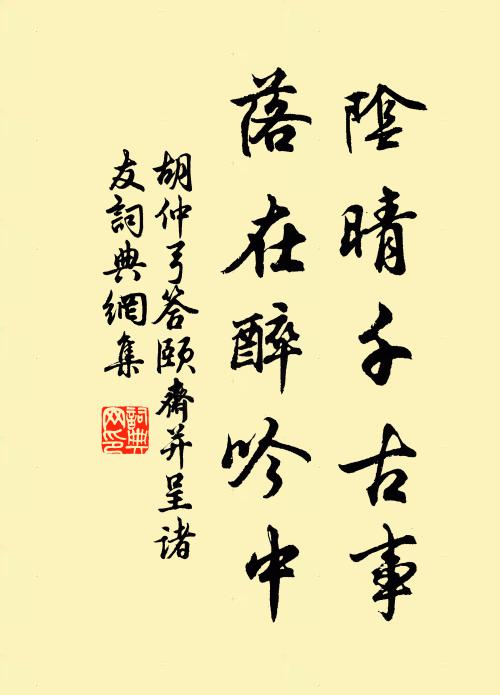 陰晴千古事
落在醉吟中
胡仲弓答頤齋并呈諸
友詞典網集
詞典網印